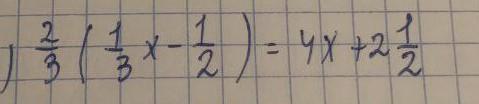 ) 2/3 ( 1/3 x - 1/2 ) = 4x + 2 1/2